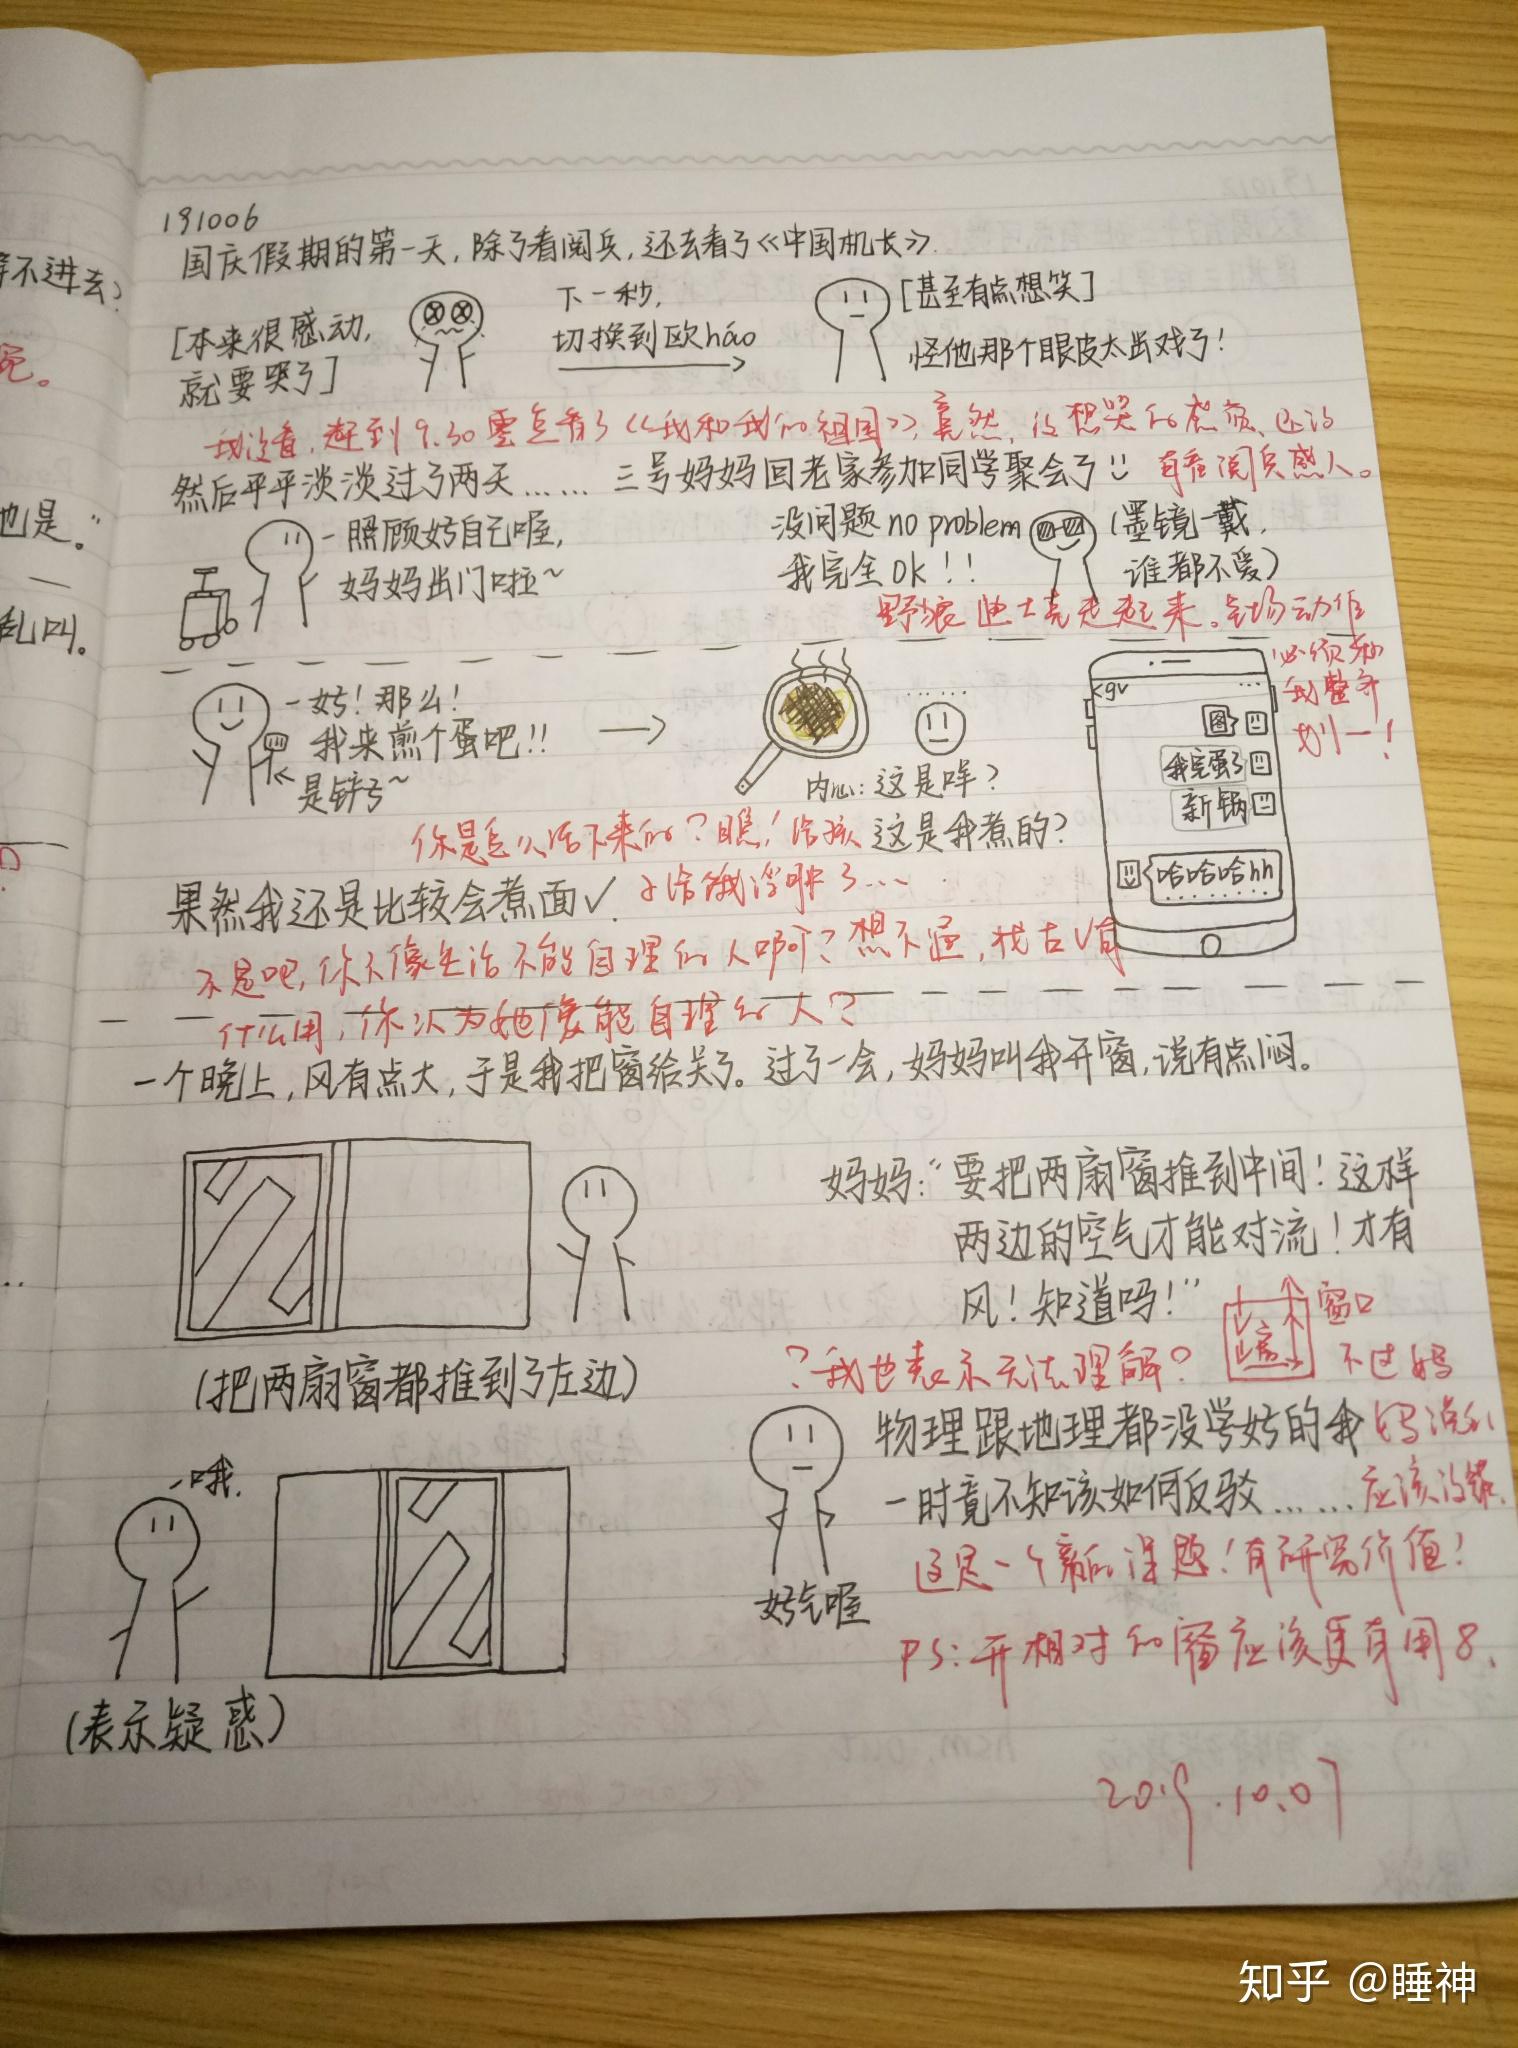 191006
国庆假期的第一天,除了看阅兵,还去看了《中国机长》.
[本来很感动,
就要哭了]
下一秒,
切换到欧háo
[甚至有点想笑]
怪他那个眼皮太出戏了!
我没看,赶到9.30零点看了《我和我的祖国》,竟然,没想哭的感觉,还没
有看阅兵感人。
然后平平淡淡过了两天……三号妈妈回老家参加同学聚会了
-照顾好自己喔,
妈妈出门啦~
没问题 no problem
我完全OK!!
(墨镜一戴,
谁都不爱)
野狼迪士高走起来。全场动作
必须和
我整齐
划一!
-好!那么!
我来煎个蛋吧!!
是铲子~
……
内心:这是咩?
这是我煮的?
<gv …
图
我完蛋了
新锅
哈哈哈hh
……
你是怎么活下来的?瞧!给孩
子给饿浮肿了…
果然我还是比较会煮面✓.
不是吧,你不像生活不能自理的人啊?想不通,找古v有
什么用,你以为她像能自理的人?
一个晚上,风有点大,于是我把窗给关了。过了一会,妈妈叫我开窗,说有点闷。
(把两扇窗都推到了左边)
妈妈:“要把两扇窗推到中间!这样
两边的空气才能对流!才有
风!知道吗!”
?我也表示无法理解?
窗口
窗
不过妈
妈说的
应该没错.
物理跟地理都没学好的我
一时竟不知该如何反驳……
好气喔
-哦.
(表示疑惑)
这是一个新的课题!有研究价值!
PS:开相对的窗应该更有用8.
2019.10.07
等不进去?
宛。
也是。”
乱叫。
知乎 @睡神